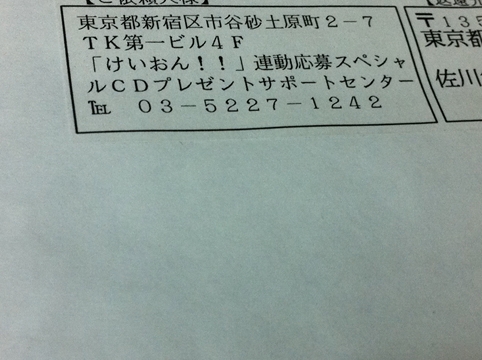 【ご依頼人様】
東京都新宿区市谷砂土原町２－７
ＴＫ第一ビル４Ｆ
「けいおん！！」連動応募スペシャ
ルＣＤプレゼントサポートセンター
℡　０３－５２２７－１２４２
〒１３５
東京都
佐川